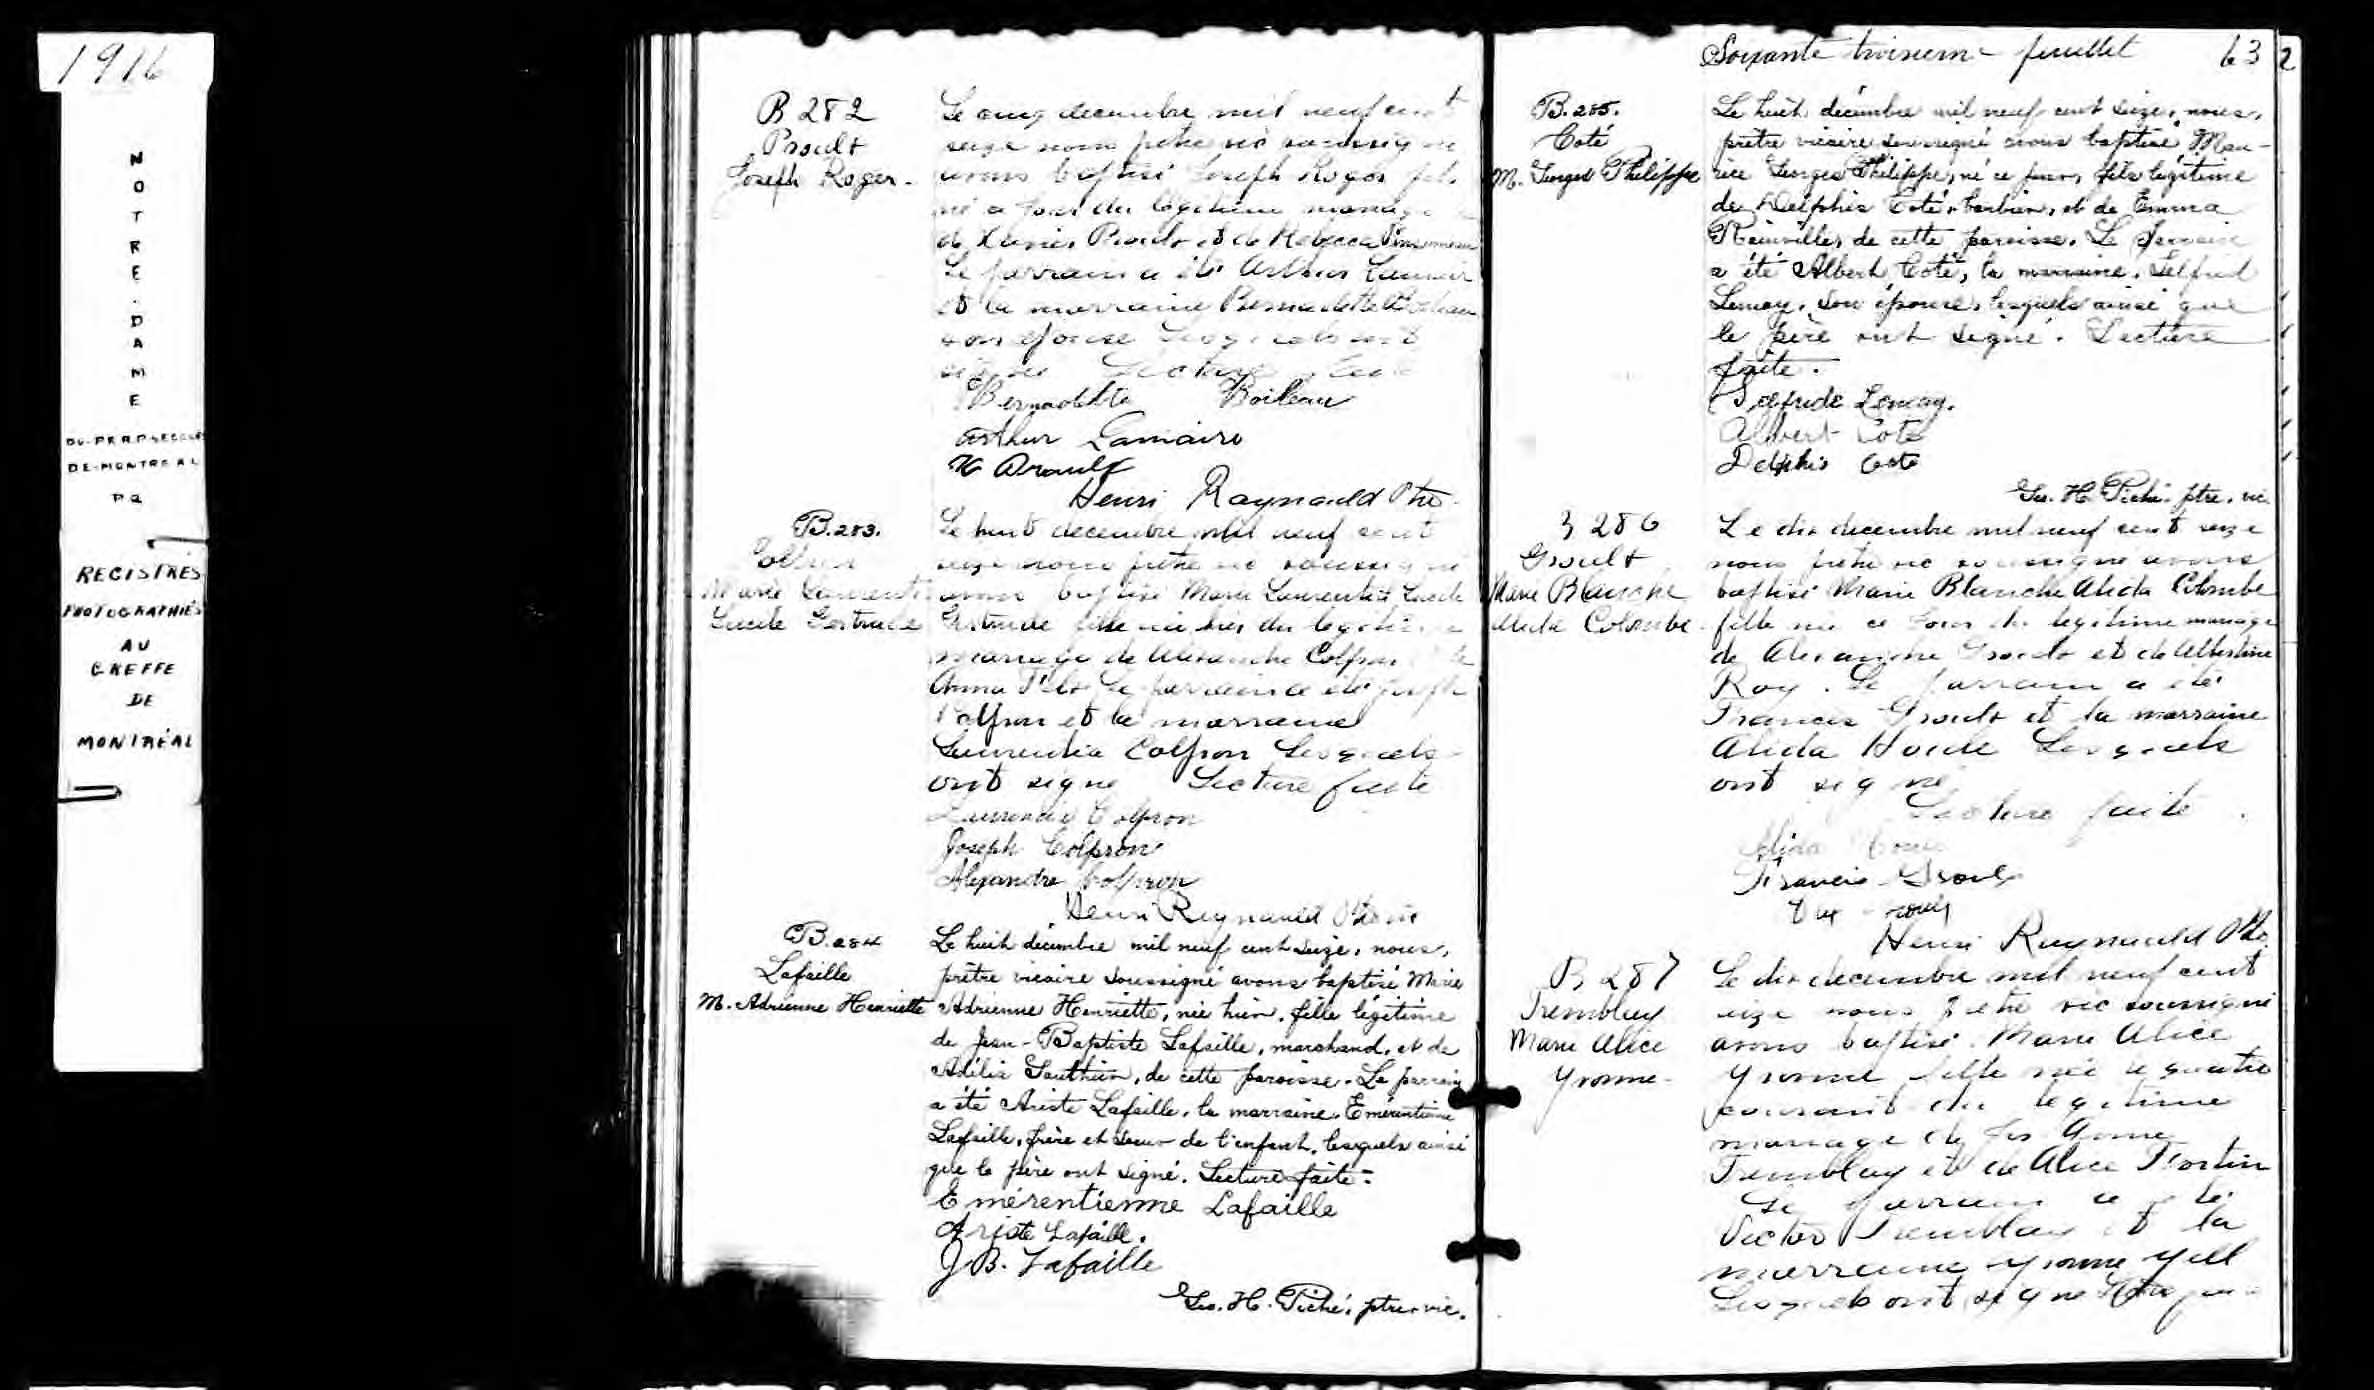 1916
NOTRE-DAME
DU-PERP-SECOURS
DE-MONTREAL
PQ
REGISTRES
PHOTOGRAPHIÉS
AU
GREFFE
DE
MONTRÉAL
B 282
Proulx
Joseph Roger.
Le cinq decembre mil neuf cent
seize nous prêtre vic soussigné
avons baptisé Joseph Roger fils
né ce jour du légitime mariage
de Proulx et de Rebecca
Le parrain a été Arthur
et la marraine Bernadette Boileau
son épouse lesquels ont
signé Lecture faite
Bernadette Boileau
Arthur Lamaire
Henri Raynauld Ptre
B.283.
Colpron
Marie Laurentia
Lucile Gertrude
Le huit decembre mil neuf cent
seize nous prêtre vic soussigné
avons baptisé Marie Laurentia Lucile
Gertrude fille née hier du légitime
mariage de Alexandre Colpron et de
Anna Le parrain a été Joseph
Colpron et la marraine
Laurentia Colpron Lesquels
ont signé Lecture faite
Laurentia Colpron
Joseph Colpron
Alexandre Colpron
Henri Raynauld Ptre vic
B.284
Lafaille
M. Adrienne Henriette
Le huit décembre mil neuf cent seize, nous,
prêtre vicaire soussigné avons baptisé Marie
Adrienne Henriette, née hier, fille légitime
de Jean-Baptiste Lafaille, marchand, et de
Adélia Gauthier, de cette paroisse. Le parrain
a été Ariste Lafaille, la marraine, Émérentienne
Lafaille, frère et soeur de l'enfant, lesquels ainsi
que le père ont signé. Lecture faite.
Emérentienne Lafaille
Ariste Lafaille.
J B. Lafaille
Geo. H. Piché, ptre, vic.
Soixante troisieme feuillet 63
2
B.285.
Coté
M. Georges Philippe
Le huit décembre mil neuf cent seize, nous,
prêtre vicaire soussigné avons baptisé Mau-
rice Georges Philippe, né ce jour, fils légitime
de Delphis Coté, barbier, et de Emma
Rainville, de cette paroisse. Le parrain
a été Albert Coté, la marraine,
Lemay, son épouse, lesquels ainsi que
le père ont signé. Lecture
faite.
Lemay.
Albert Coté
Delphis Coté
Geo. H. Piché, ptre, vic.
B 286
Groulx
Marie Blanche
Alida Colombe.
Le dix decembre mil neuf cent seize
nous prêtre vic soussigné avons
baptisé Marie Blanche Alida Colombe
fille née ce jour du légitime mariage
de Alexandre Groulx et de Albertine
Roy. Le parrain a été
Francis Groulx et la marraine
Alida Houle Lesquels
ont signé
Lecture faite.
Alida Houle
Francis Groulx
Henri Raynauld Ptre
B 287
Tremblay
Marie Alice
Yvonne
Le dix decembre mil neuf cent
seize nous prêtre vic soussigné
avons baptisé Marie Alice
Yvonne fille née le quatre
courant du légitime
mariage de Jos
Tremblay et de Alice Fortin
Le parrain a été
Victor Tremblay et la
marraine Yvonne
Lesquels ont signé